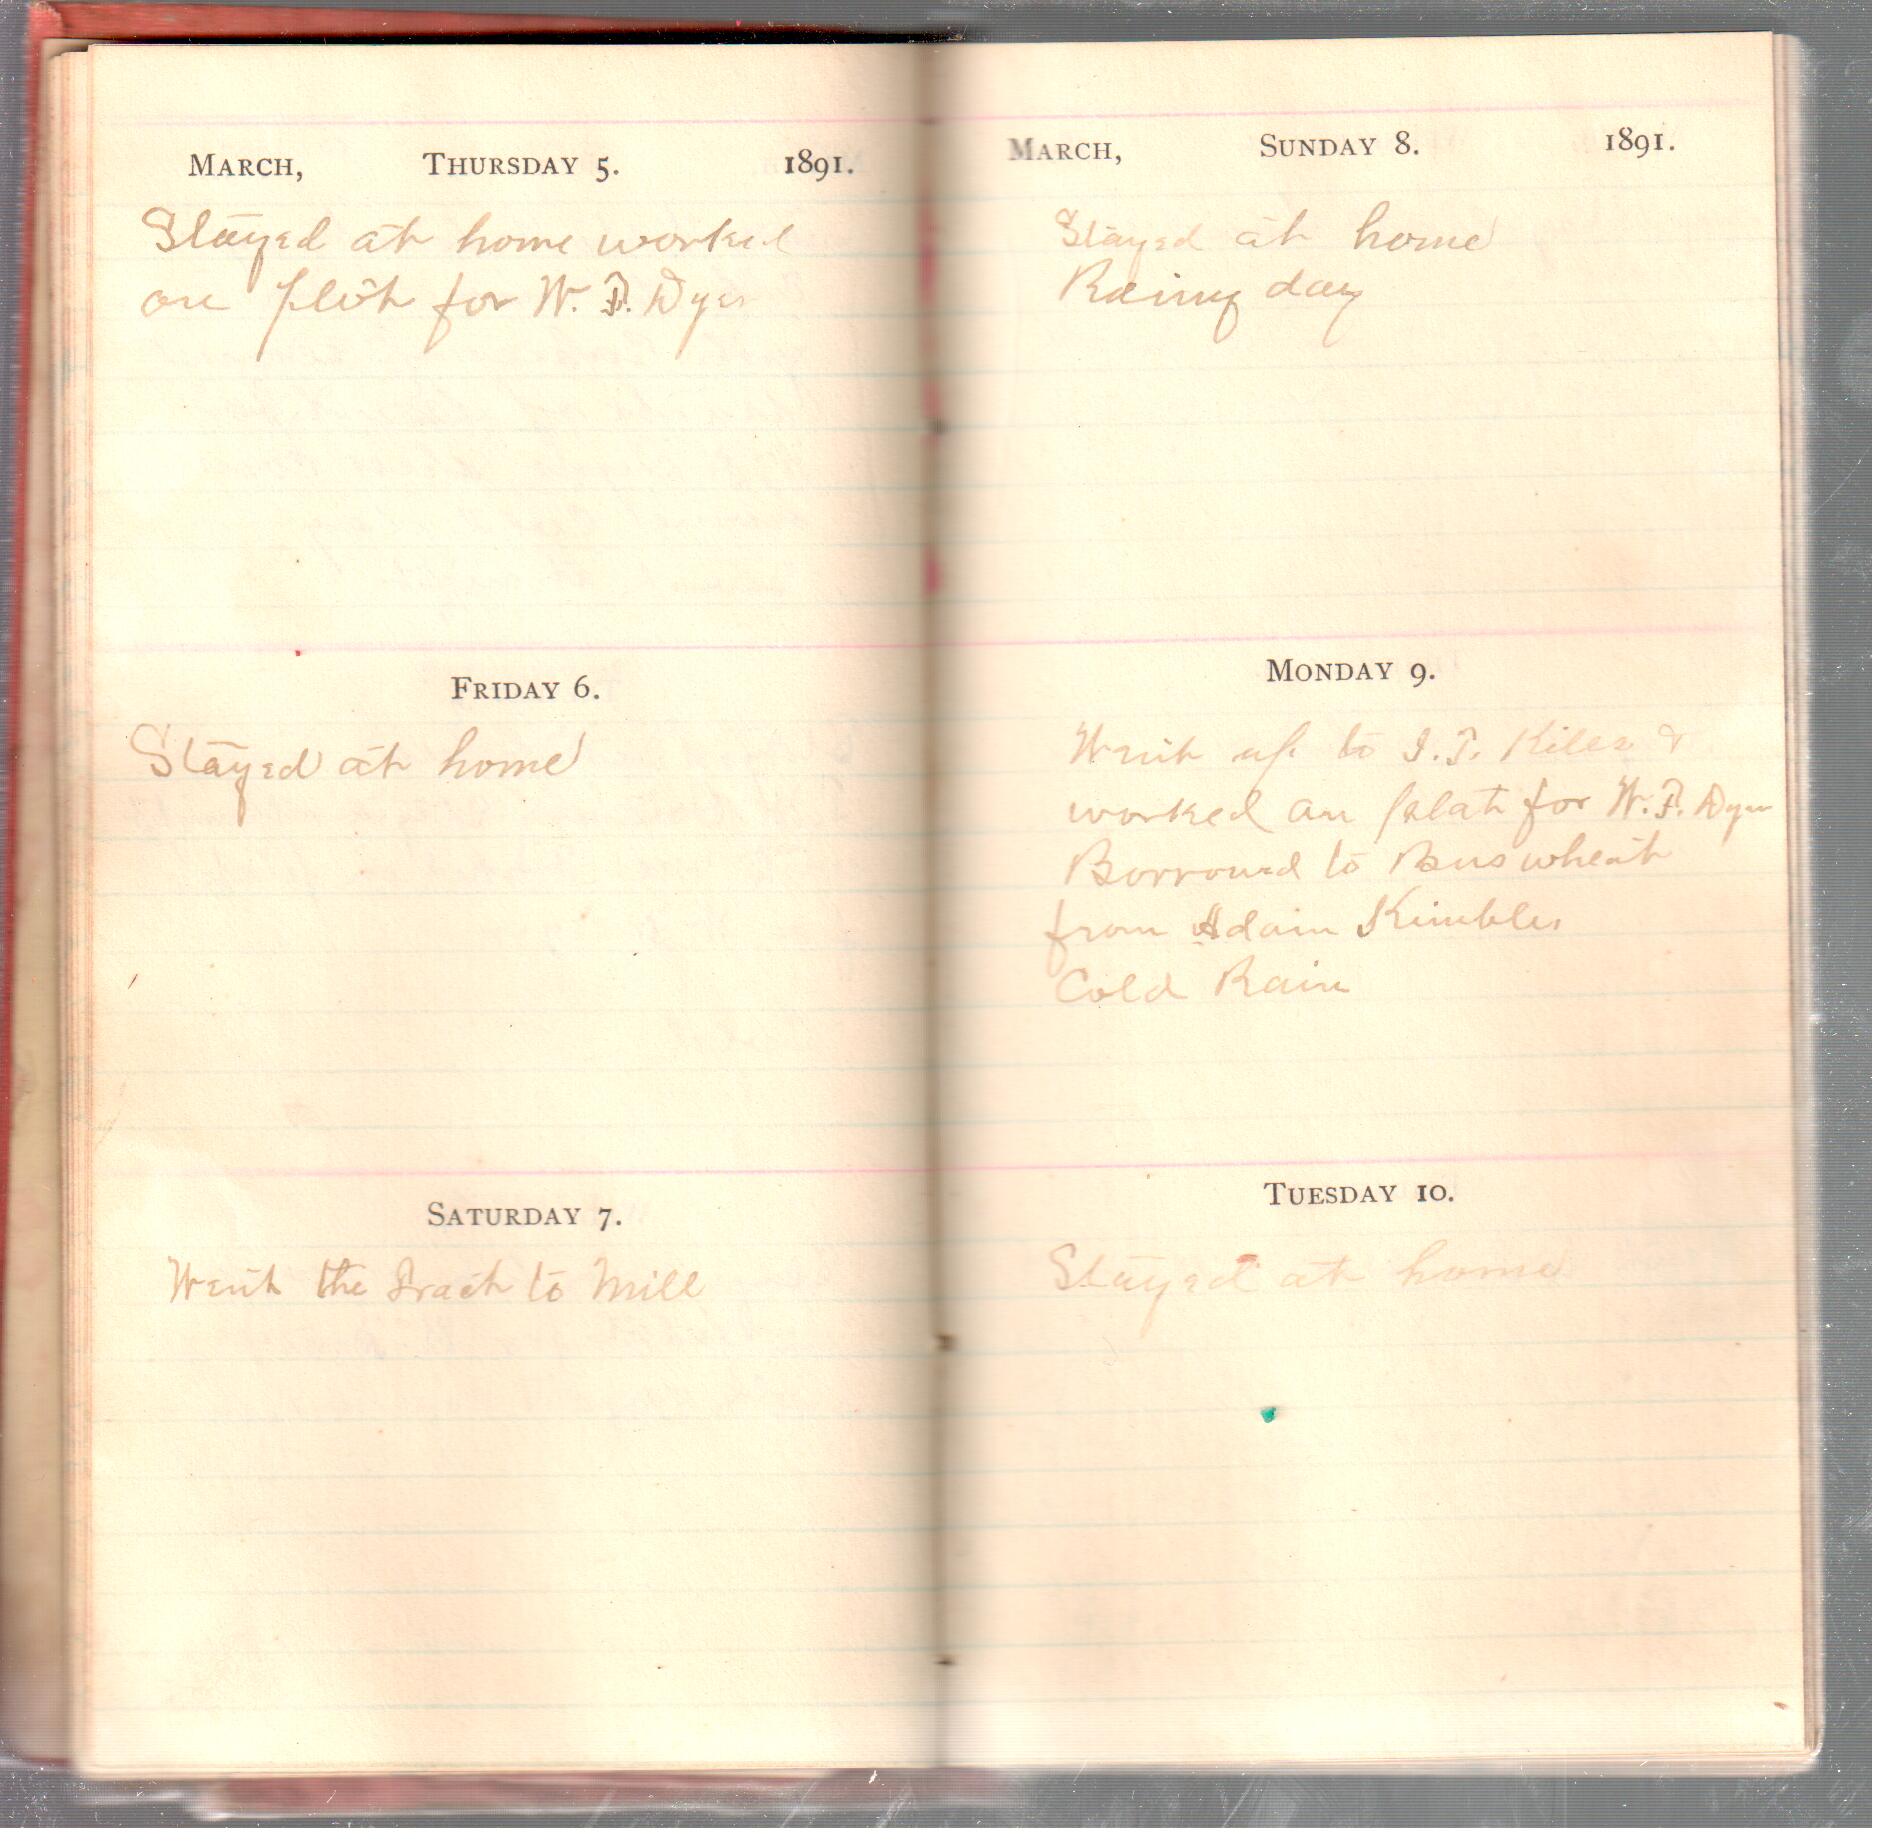 MARCH, THURSDAY 5. 1891.
Stayed at home worked
on plat for W. F. Dyer
FRIDAY 6.
Stayed at home
SATURDAY 7.
Went the to Mill
MARCH, SUNDAY 8. 1891.
Stayed at home
Rainy day
MONDAY 9.
Went up to &
worked on plat for W. F. Dyer
Borrowed to Bus wheat
from Adam Kimbler
Cold Rain
TUESDAY 10.
Stayed at home